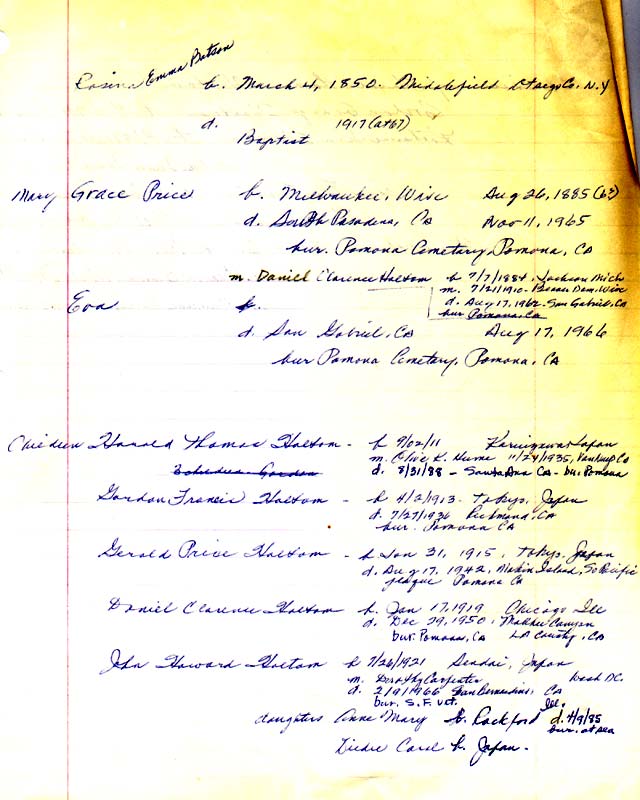 Rosina Emma Batson b. March 4, 1850. Middlefield Otsego Co. N.Y
d. 1917 (at 67)
Baptist
Mary Grace Price b. Milwaukee, Wisc Aug 26, 1885
d. South Pasadena, CA Nov 11, 1965
bur. Pomona Cemetary, Pomona, CA
m. Daniel Clarence Holtom b 7/7/1884. Jackson Mich
m. 7/21/1910. Beaver Dam, Wisc
d. Aug 17, 1962. San Gabriel, Ca
bur Pomona, Ca
Eva b.
d. San Gabriel, CA Aug 17, 1966
bur Pomona Cemetary, Pomona, CA
Children Harold Thomas Holtom - b 9/02/11 Karuizawa Japan
m. Olive K. Hume 11/24/1935, Co
d. 8/31/88 - Santa Ana CA - bu. Pomona
Gordon
Gordon Francis Holtom - b 4/2/1913 - Tokyo, Japan
d. 7/27/1936 Richmond, CA
bur. Pomona CA
Gerald Price Holtom - b Jan 31, 1915, Tokyo, Japan
d. Aug 17, 1942, Makin Island, So Pacific
plaque Pomona Ca
Daniel Clarence Holtom b. Jan 17, 1919 Chicago Ill
d. Dec 29, 1950, Malibu Canyon
bur. Pomona, CA LA County, CA
John Howard Holtom b 7/26/1921 Sendai, Japan
m. Dorothy Carpenter Wash DC.
d. 2/9/1966 San Bernardino, CA
bur. S.F. Vet.
daughters Anne Mary b. Rockford Ill. d. 4/9/85
bur. at sea
Diedre Carol b. Japan.